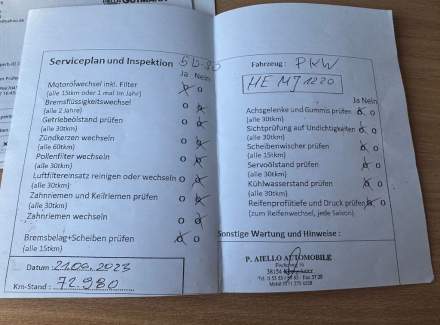 GUTMANN
Serviceplan und Inspektion
Ja Nein
Motorölwechsel inkl. Filter
(alle 15tkm oder 1 mal im Jahr)
Bremsflüssigkeitswechsel
(alle 2 Jahre)
Getriebeölstand prüfen
(alle 30tkm)
Zündkerzen wechseln
(alle 60tkm)
Pollenfilter wechseln
(alle 30tkm)
Luftfiltereinsatz reinigen oder wechseln
(alle 30tkm)
Zahnriemen und Keilriemen prüfen
(alle 30tkm)
Zahnriemen wechseln
Bremsbelag+Scheiben prüfen
(alle 15tkm)
Datum : 21.09.2023
Km-Stand : 72.980
Fahrzeug : PKW
HE MJ 1220
Ja Nein
Achsgelenke und Gummis prüfen
(alle 30tkm)
Sichtprüfung auf Undichtigkeiten
(alle 30tkm)
Scheibenwischer prüfen
(alle 15tkm)
Servoölstand prüfen
(alle 30tkm)
Kühlwasserstand prüfen
(alle 30tkm)
Reifenprofiltiefe und Druck prüfen
(zum Reifenwechsel, jede Saison)
Sonstige Wartung und Hinweise :
P. AIELLO AUTOMOBILE
38154